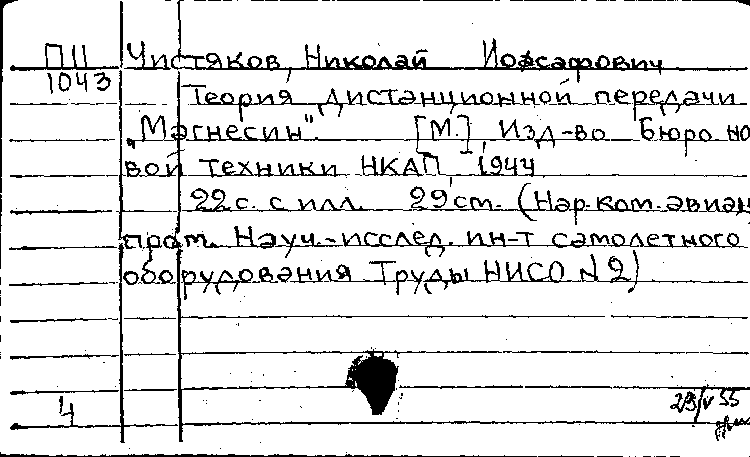 ПII Чистяков, Николай Иоасафович
1043 Теория дистанционной передачи
„Магнесин". [М.], Изд-во Бюро но
вой техники НКАП, 1944
22 с. с илл. 29 см. (Нар. ком. авиац
пром. Науч.-исслед. ин-т самолетного
оборудования Труды НИСО № 2)
4 23/V 55